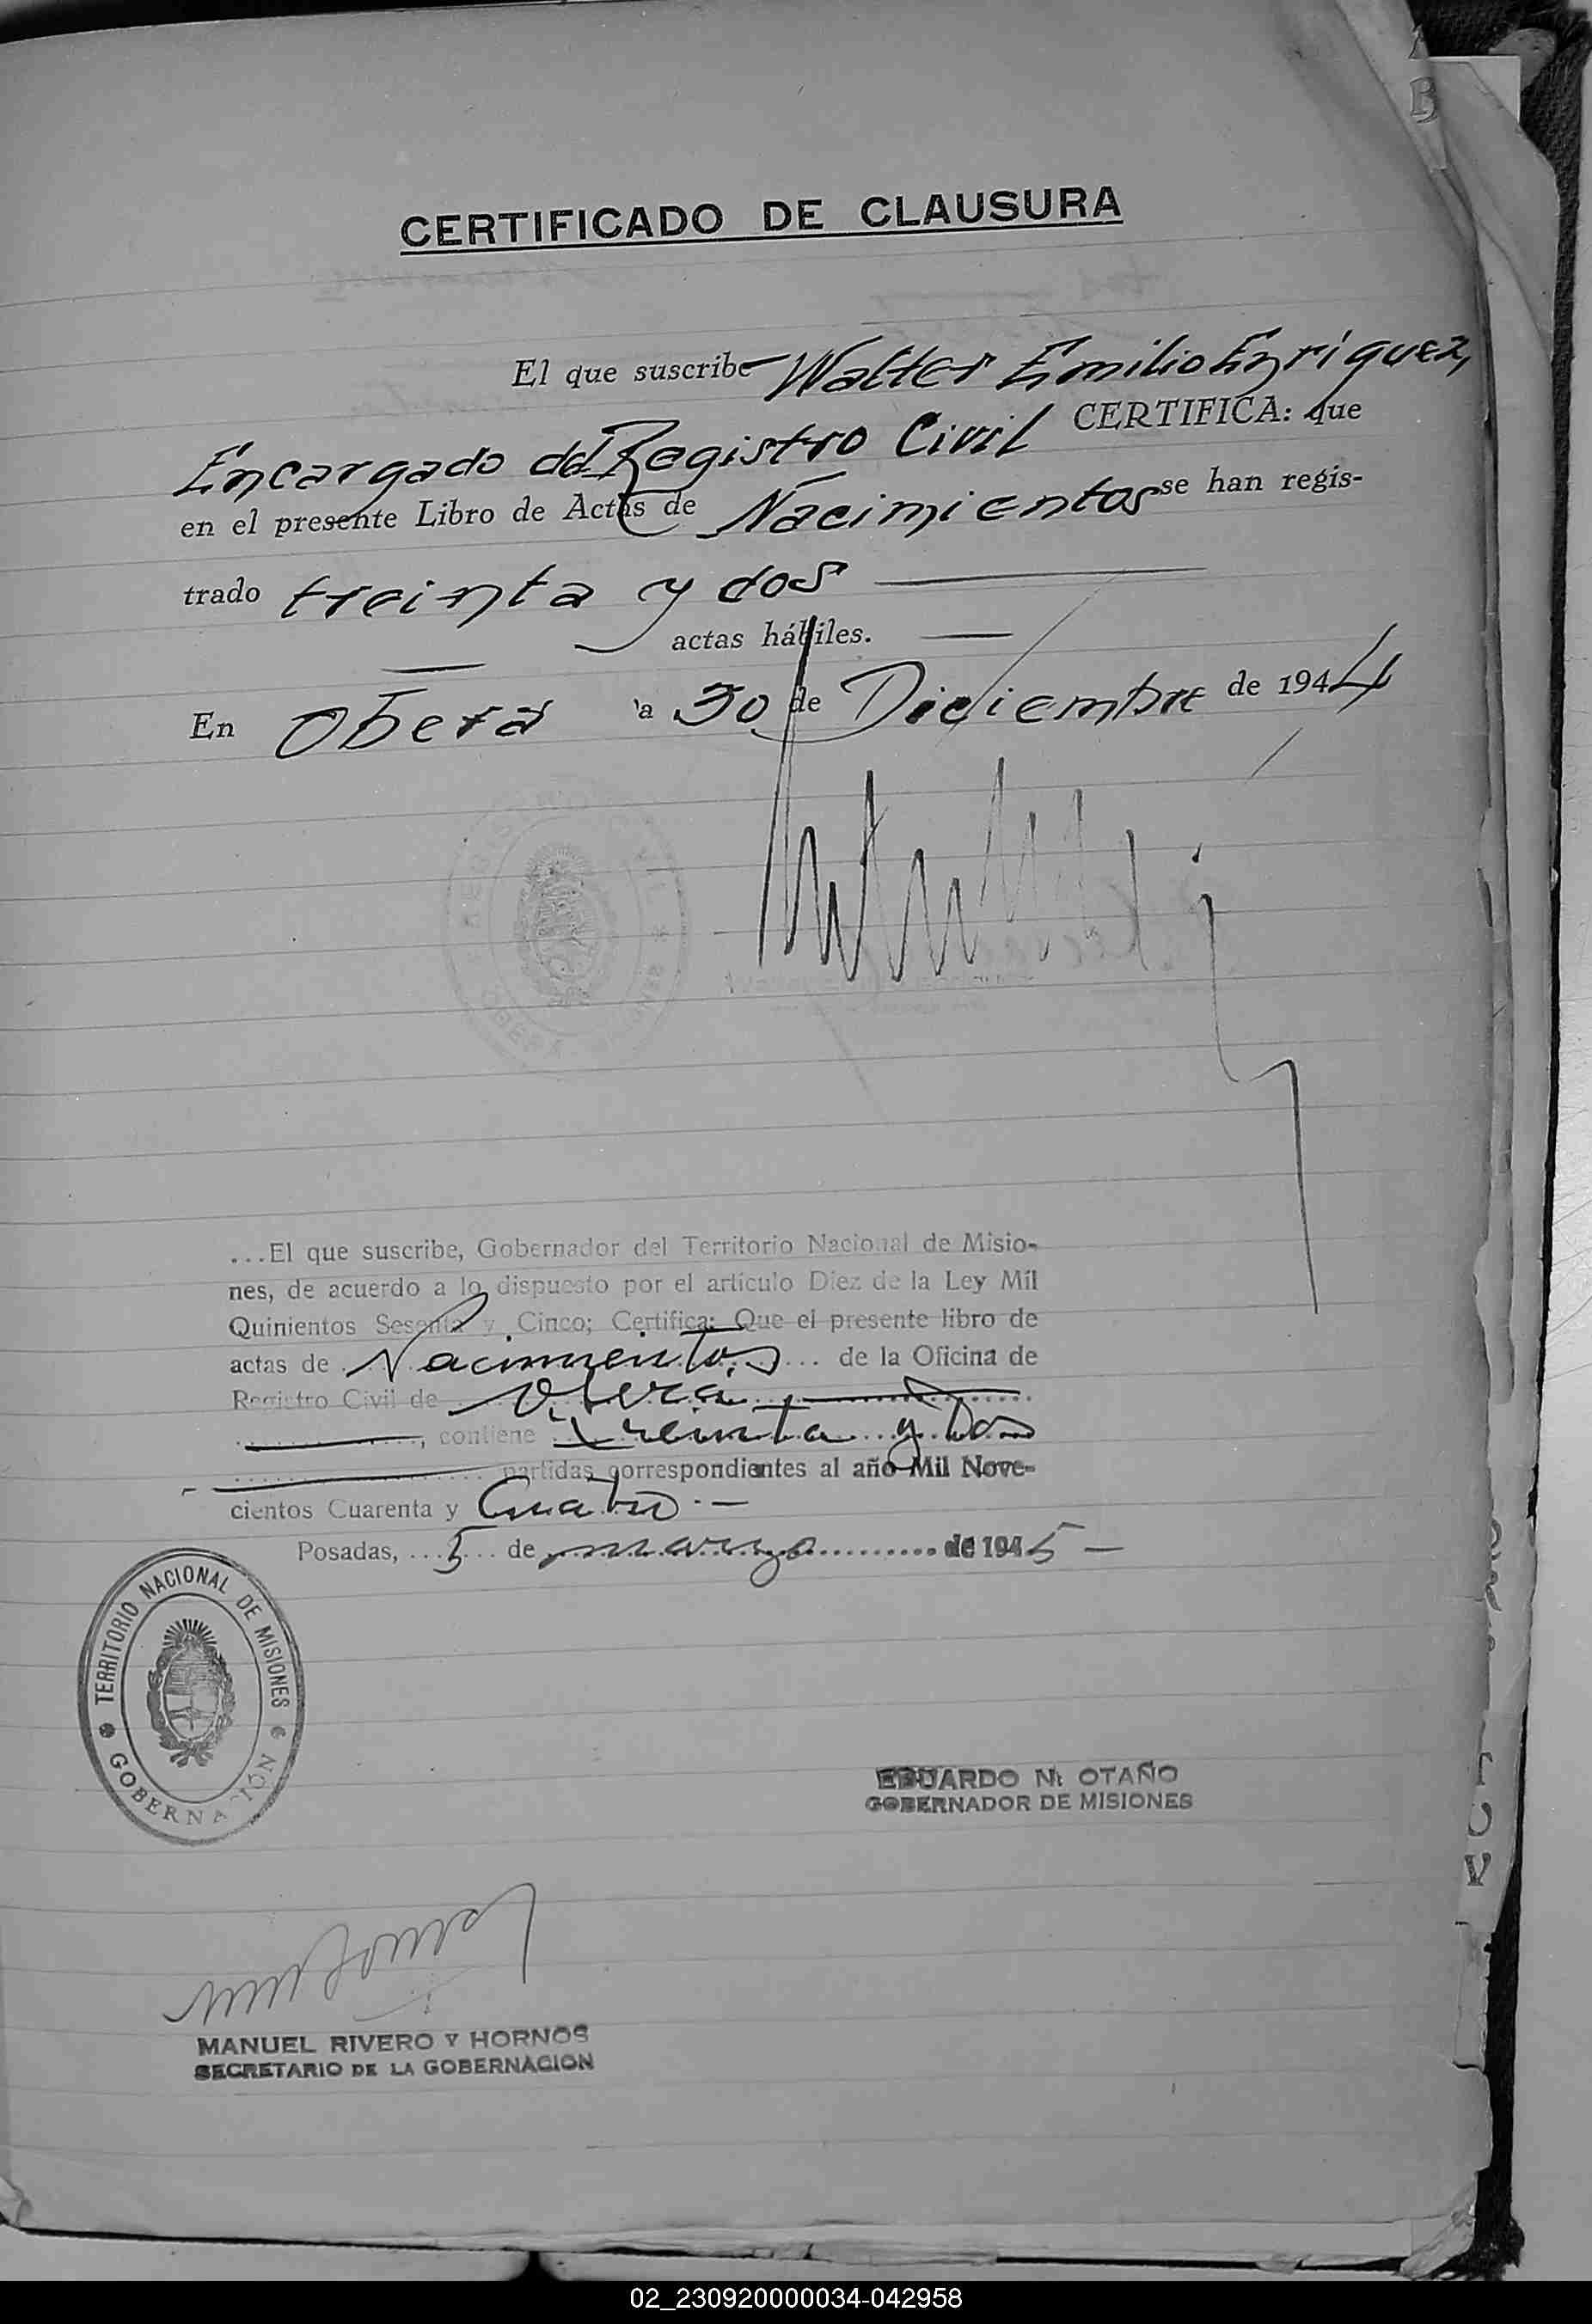 CERTIFICADO DE CLAUSURA
El que suscribe Walter Emilio Enriquez,
Encargado del Registro Civil CERTIFICA: que
en el presente Libro de Actas de Nacimientos se han regis-
trado treinta y dos
actas hábiles.
En Oberá a 30 de Diciembre de 1944
REGISTRO CIVIL
OBERA
...El que suscribe, Gobernador del Territorio Nacional de Misio-
nes, de acuerdo a lo dispuesto por el artículo Diez de la Ley Mil
Quinientos Sesenta y Cinco; Certifica: Que el presente libro de
actas de Nacimientos de la Oficina de
Registro Civil de Oberá
, contiene treinta y dos
partidas correspondientes al año Mil Nove-
cientos Cuarenta y Cuatro.-
Posadas, ...5... de marzo de 1945-
TERRITORIO NACIONAL DE MISIONES
GOBERNACIÓN
EDUARDO N. OTAÑO
GOBERNADOR DE MISIONES
MANUEL RIVERO Y HORNOS
SECRETARIO DE LA GOBERNACION
02_230920000034-042958